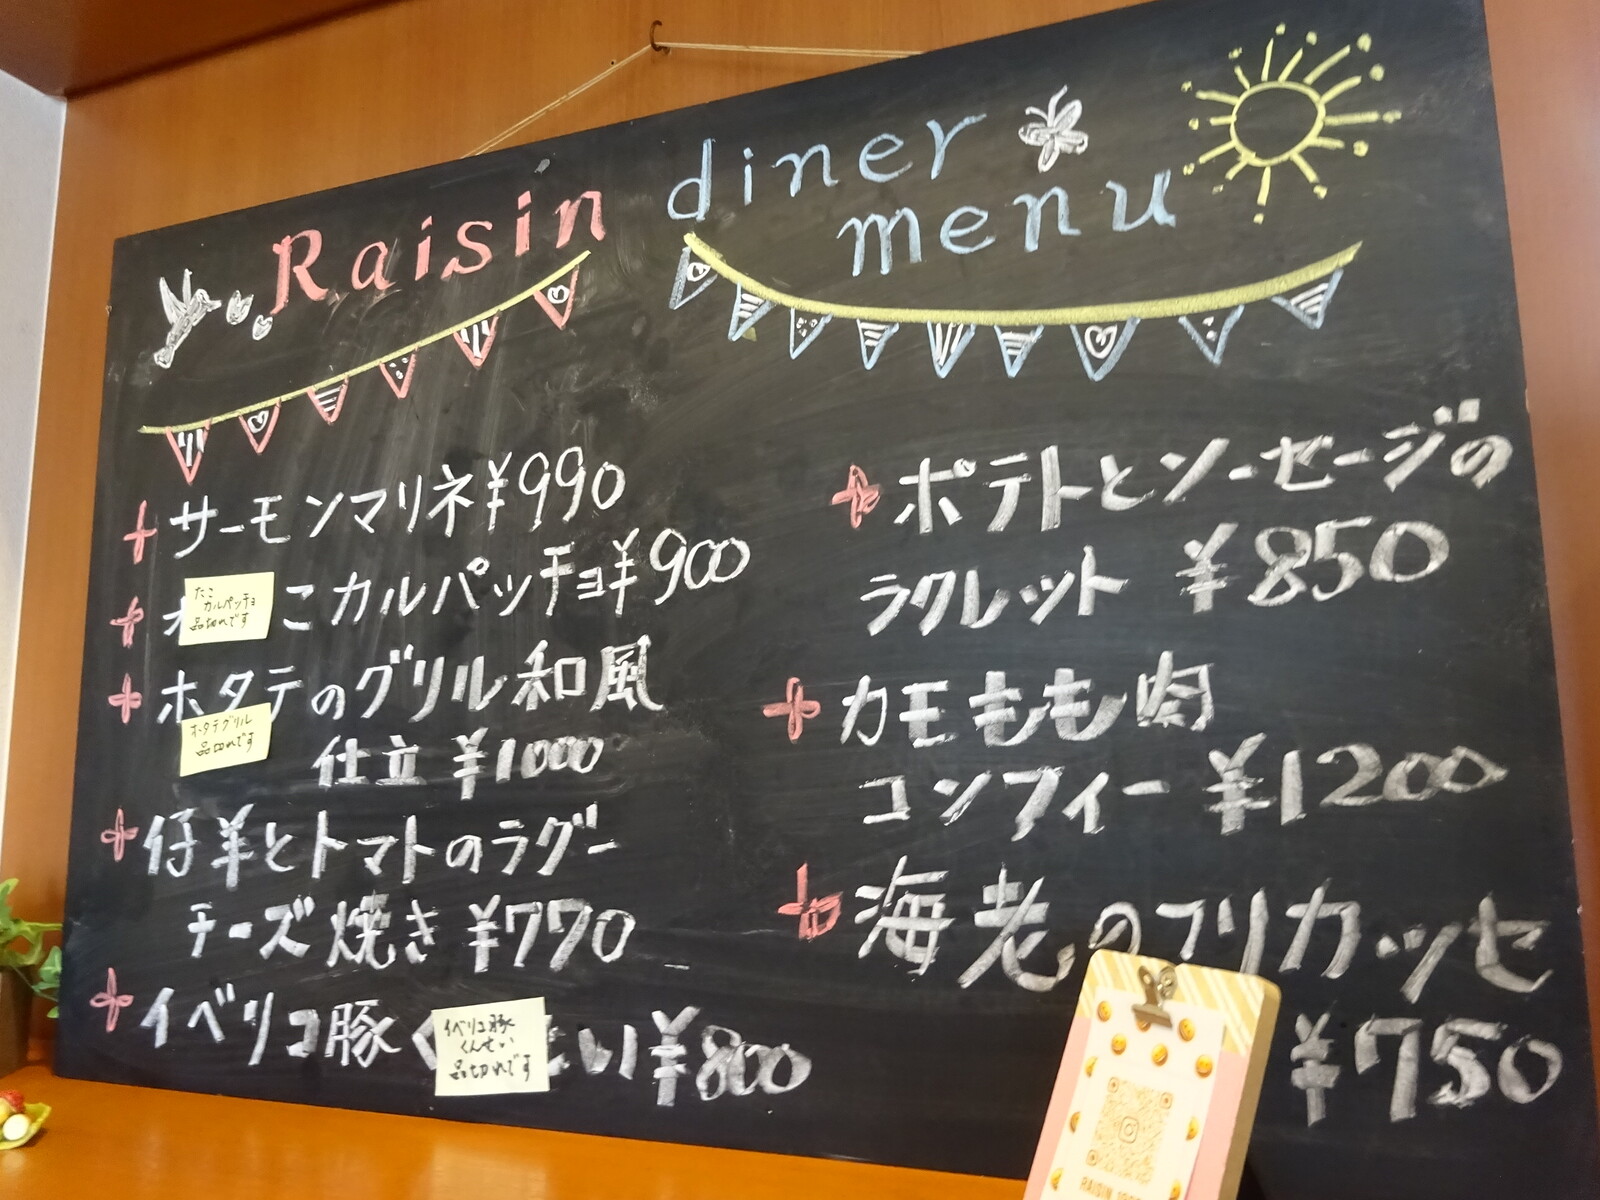 Raisin diner
menu
サーモンマリネ¥990
こカルパッチョ¥900
たこ
カルパッチョ
品切れです
ホタテのグリル和風
仕立¥1000
ホタテグリル
品切れです
仔羊とトマトのラグー
チーズ焼き¥770
イベリコ豚くんせい¥800
イベリコ豚
くんせい
品切れです
ポテトとソーセージの
ラクレット ¥850
カモもも肉
コンフィー¥1200
海老のフリカッセ
¥750
RAISIN